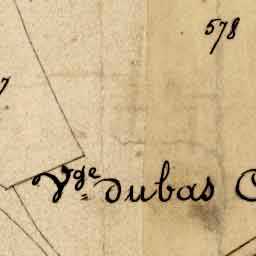 578
7
Vge dubas C